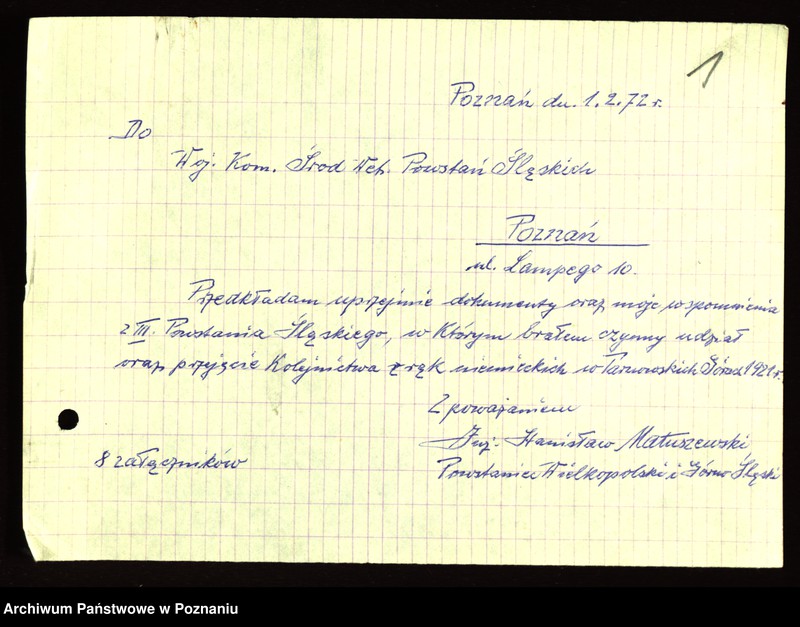 1
Poznań dn. 1.2.72 r.
Do
Woj. Kom. Środ Wet. Powstań Śląskich
Poznań
ul. Lampego 10.
Przedkładam uprzejmie dokumenty oraz moje wspomnienia
z III. Powstania Śląskiego, w którym brałem czynny udział
oraz przejęcie Kolejnictwa z rąk niemieckich w Tarnowskich Górach 1921 r.
Z poważaniem
Inż. Stanisław Matuszewski
8 załączników
Powstaniec Wielkopolski i Górno Śląski
Archiwum Państwowe w Poznaniu